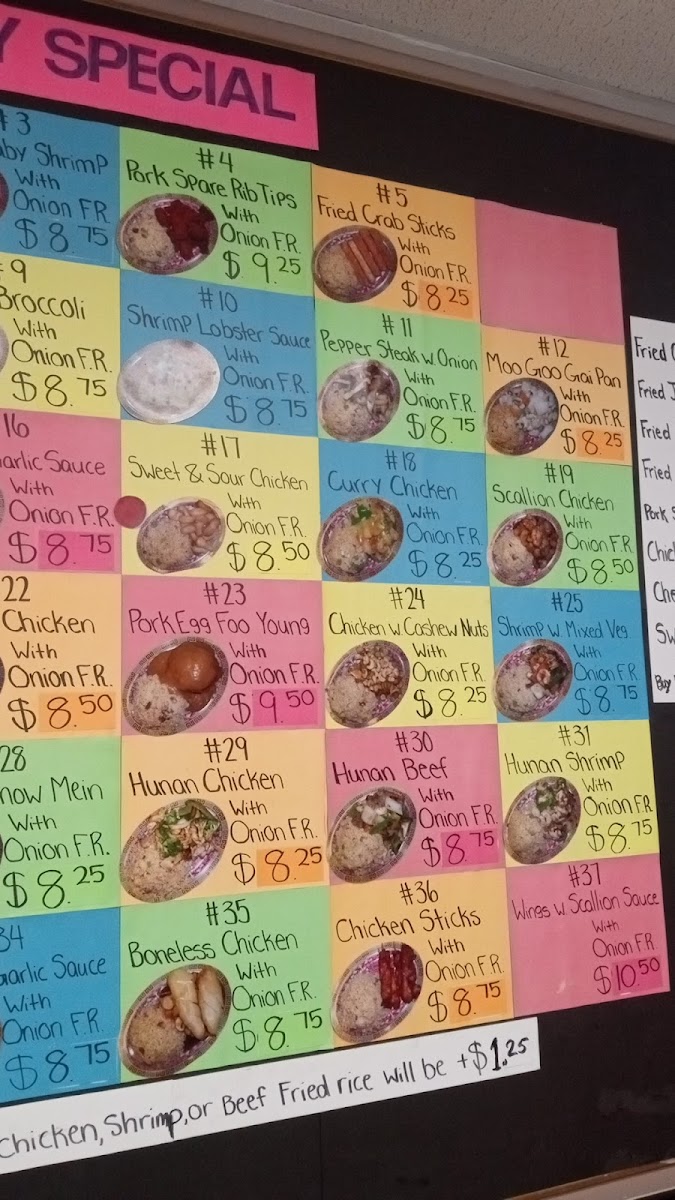 Y SPECIAL
#3
aby Shrimp
With
Onion F.R.
$8.75
#4
Pork Spare Rib Tips
With
Onion F.R.
$9.25
#5
Fried Crab Sticks
With
Onion F.R.
$8.25
#9
Broccoli
With
Onion F.R.
$8.75
#10
Shrimp Lobster Sauce
With
Onion F.R.
$8.75
#11
Pepper Steak w. Onion
With
Onion F.R.
$8.75
#12
Moo Goo Gai Pan
With
Onion F.R.
$8.25
16
arlic Sauce
With
Onion F.R.
$8.75
#17
Sweet & Sour Chicken
With
Onion F.R.
$8.50
#18
Curry Chicken
With
Onion F.R.
$8.25
#19
Scallion Chicken
With
Onion F.R.
$8.50
22
Chicken
With
Onion F.R.
$8.50
#23
Pork Egg Foo Young
With
Onion F.R.
$9.50
#24
Chicken w. Cashew Nuts
With
Onion F.R.
$8.25
#25
Shrimp w. Mixed Veg.
With
Onion F.R.
$8.75
28
how Mein
With
Onion F.R.
$8.25
#29
Hunan Chicken
With
Onion F.R.
$8.25
#30
Hunan Beef
With
Onion F.R.
$8.75
#31
Hunan Shrimp
With
Onion F.R.
$8.75
34
Garlic Sauce
With
Onion F.R.
$8.75
#35
Boneless Chicken
With
Onion F.R.
$8.75
#36
Chicken Sticks
With
Onion F.R.
$8.75
#37
Wings w. Scallion Sauce
With
Onion F.R.
$10.50
Chicken, Shrimp, or Beef Fried rice will be +$1.25
Fried
Fried
Fried
Fried
Pork
Chic
Che
Sw
Buy